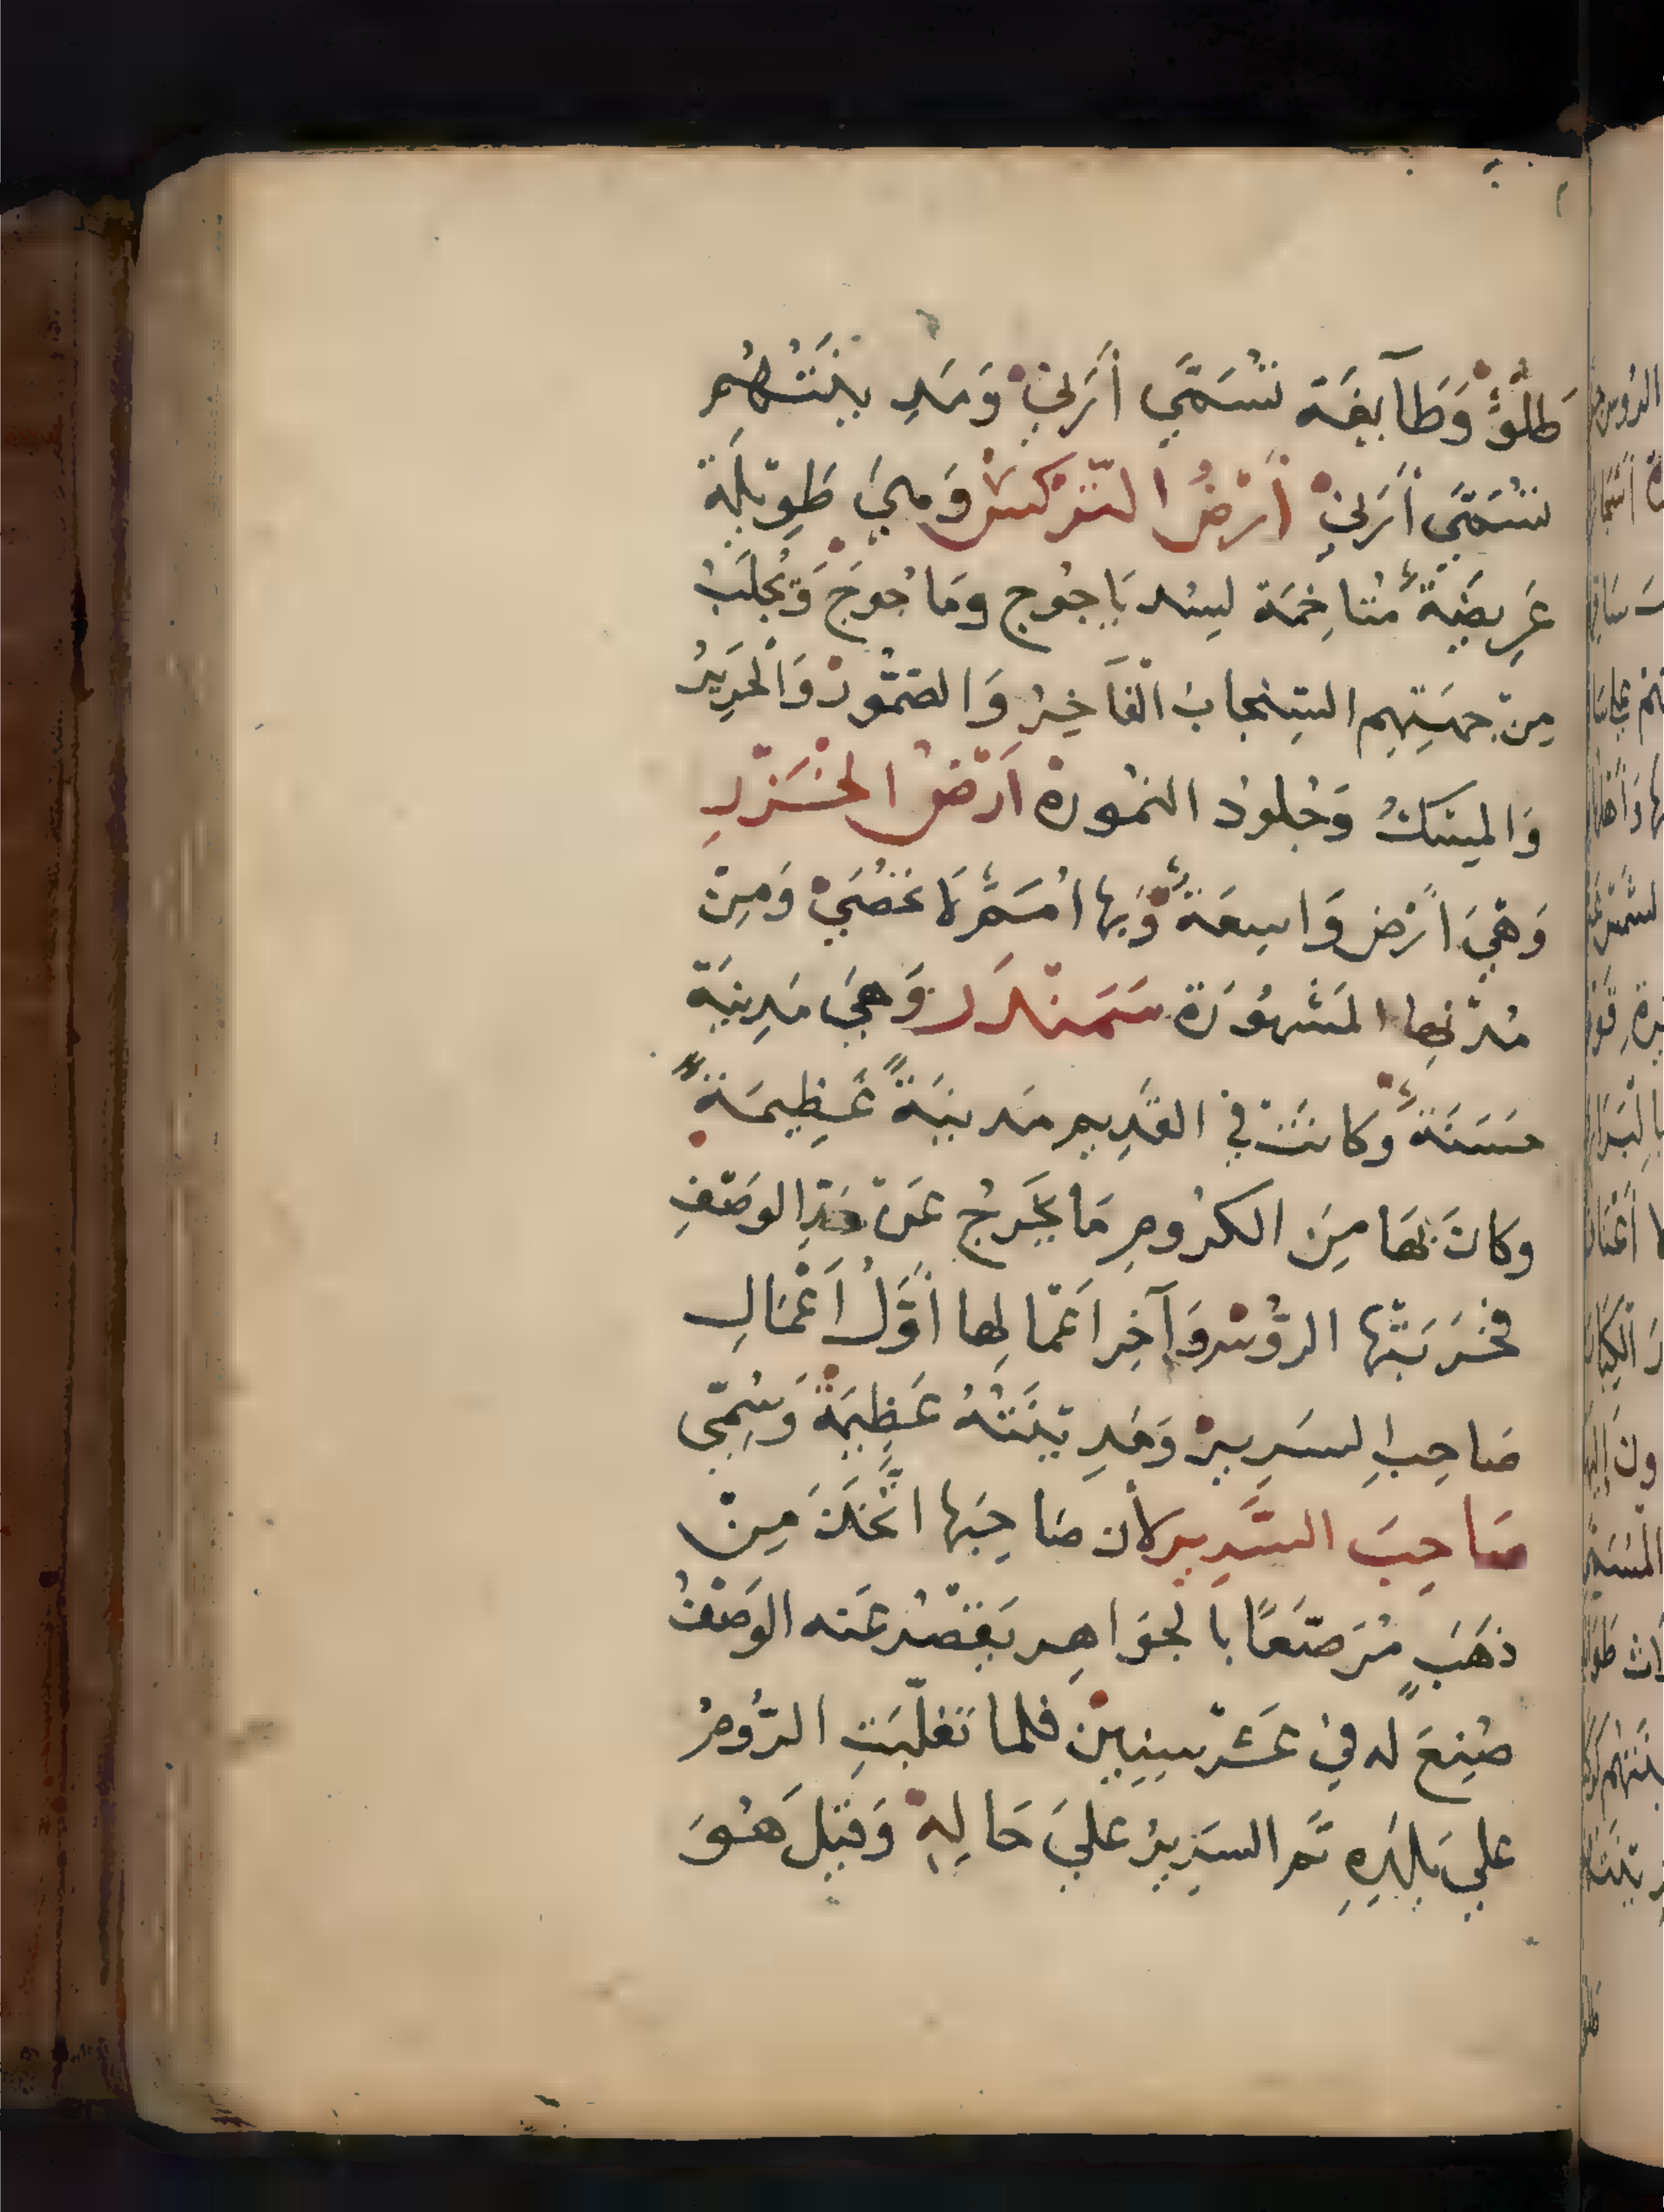 طَلْوٌ وَطَآيفَة تُسَمَّي أَرَنِيْ وَمَدِ ينَتُهُم
تُسَمَّي أَرَنِيْ أَرْضُ التُّرْكسْ وَهِيَ طَوِيْلَة
عَرِيضَةٌ مُتَاخِمَة لِسدّ يَاجُوج وَمَاجُوجْ وَتُجْلَبُ
مِنْ جِهَتِهِم السِّنجابُ الْفَاخِرُ وَالصَّمُّورْ وَالْحَرِيرُ
وَالمِسْكُ وَجُلودُ النمُورة اَرْضُ الخَزَرِ
وَهْيَ اَرْض وَاسِعَةٌ وَبِها اُمَمٌ لَا تحْصَيْ وَمِنْ
مُدْنِها المَشْهُوَرَة سَمَنْدَر وَهِيَ مَدِينَة
حَسَنَةٌ وَكانَتْ في القَدِيم مَدينَةً عَظِيمَةً
وَكانَ بَهَا مِنَ الكرُومِ مَا يَخْرجُ عَنْ حَدِّ الوَصْفِ
فَخَرَبَتْها الرُّوُسْ وَآخِر اَعْمَالِها أَوَّلُ اَعْمَالِ
صَاحِبِ السَرِيرْ وَمَدِ ينَتُهُ عَظِيَمَةْ وَسُمِّي
صَاحِبَ السَّرِيرِ لأن صَاحِبَها اتَّخَذَ مِنْ
ذَهَبٍ مُرَصَّعًا بِالجَوَاهِر يَقْصُرُ عَنه الوَصْفُ
صُنِعَ لَه فِي عَشْرِ سِنِينْ فلما تَغلَّبَتِ الرُّومُ
عليَ بِلَادِهِ تَمَّ السَرِيرُ عَليَ حَالِهِ وَقِيلَ هُوَ